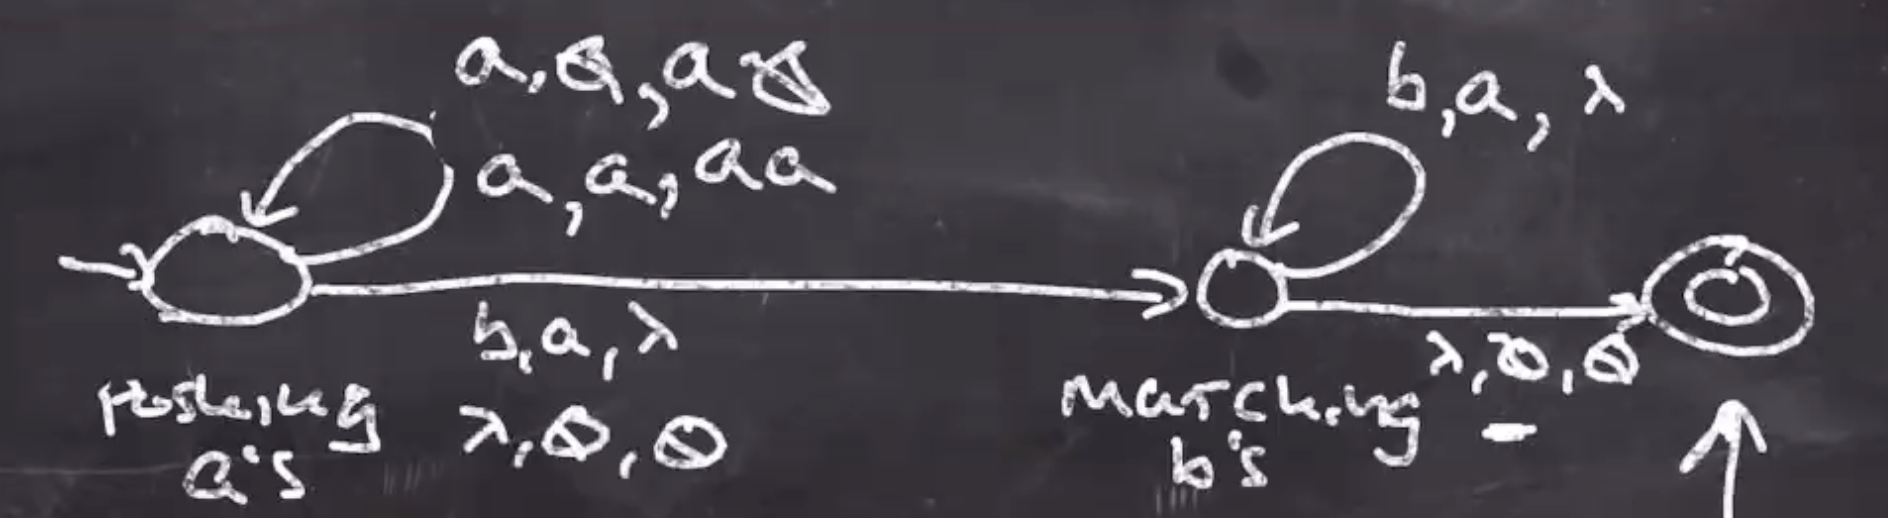 a, ∅, a∅
a, a, aa
b, a, λ
b, a, λ
λ, ∅, ∅
pushing
a's
λ, ∅, ∅
matching
b's